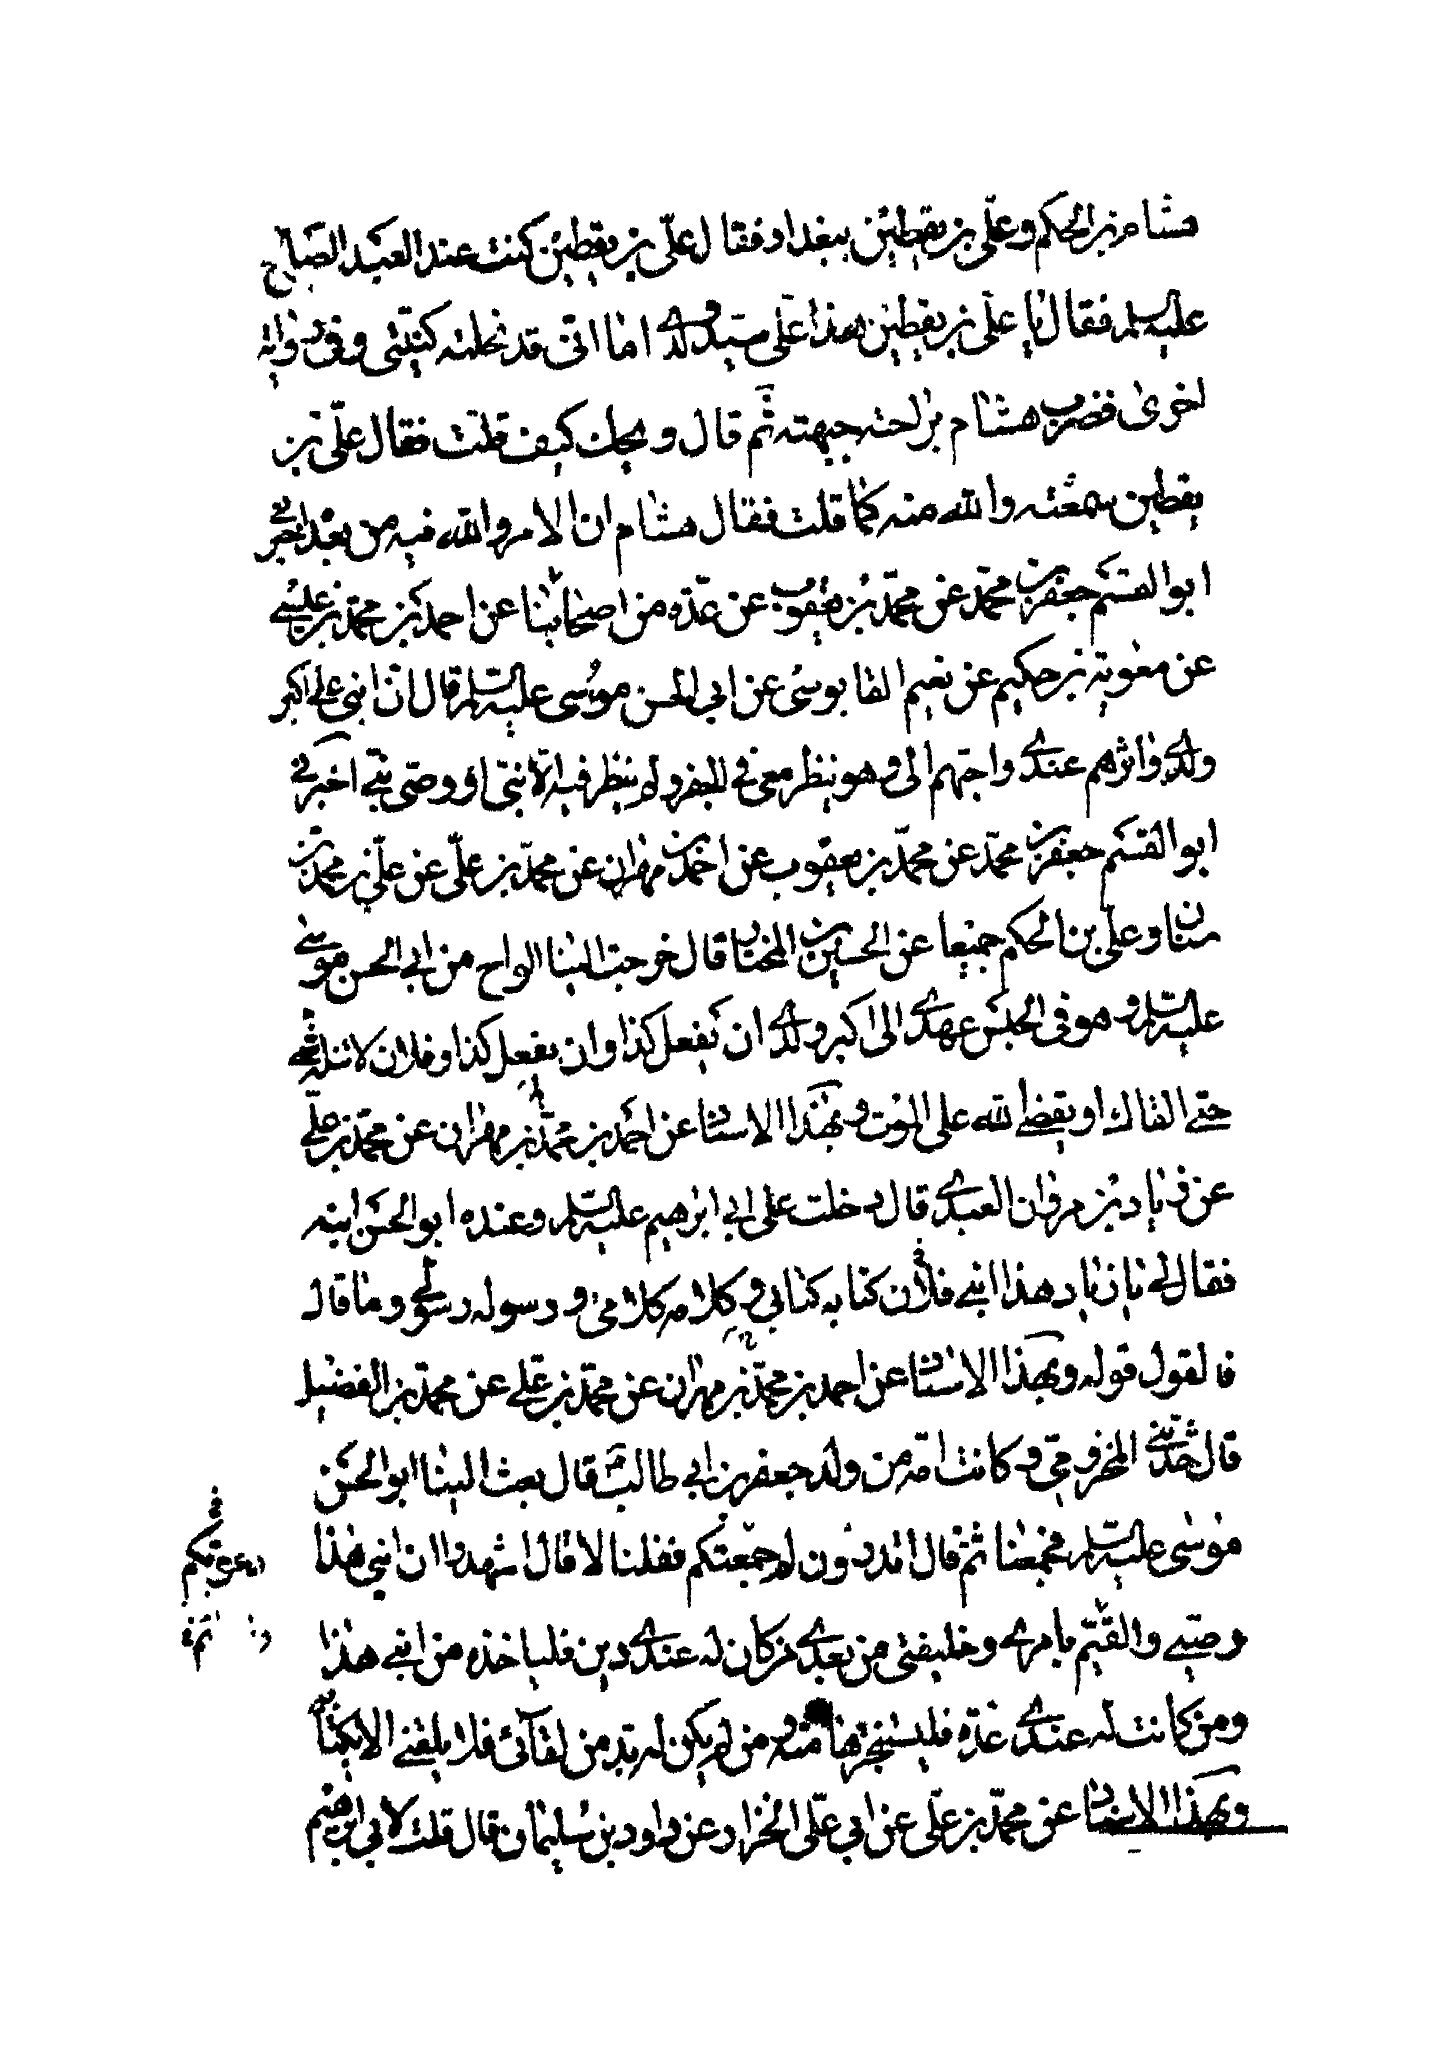 هشام بن الحكم وعلي بن يقطين ببغداد فقال علي بن يقطين كنت عند العبد الصالح
عليه السلم فقال يا علي بن يقطين هذا علي سيد ولدي اما اني قد نحلته كنيتي وفي رواية
اخرى فضرب هشام براحته جبهته ثم قال ويحك كيف قلت فقال علي بن
يقطين سمعته والله منه كما قلت فقال هشام ان الامر والله فيه من بعد اخبرني
ابو القسم جعفر بن محمد عن محمد بن يعقوب عن عدة من اصحابنا عن احمد بن محمد بن عيسى
عن معوية بن حكيم عن نعيم القابوسي عن ابي الحسن موسى عليه السلم قال ان ابني علي اكبر
ولدي واثرهم عندي واحبهم الي وهو ينظر معي في الجفر ولم ينظر فيه الا نبي او وصي نبي اخبرني
ابو القسم جعفر بن محمد عن محمد بن يعقوب عن احمد بن مهران عن محمد بن علي عن علي بن محمد بن
سنان وعلي بن الحكم جميعا عن الحسين بن المختار قال خرجت الينا الواح من ابي الحسن موسى
عليه السلم وهو في الحبس عهدي الى اكبر ولدي ان يفعل كذا وان يفعل كذا وفلان لا تنله شيئا
حتى القاك او يقضي الله علي الموت وبهذا الاسناد عن احمد بن محمد بن مهران عن محمد بن علي
عن زياد بن مروان العبدي قال دخلت على ابي ابرهيم عليه السلم وعنده ابو الحسن ابنه
فقال لي يا زياد هذا ابني فلان كتابه كتابي وكلامه كلامي ورسوله رسولي وما قال
فالقول قوله وبهذا الاسناد عن احمد بن محمد بن مهران عن محمد بن علي عن محمد بن الفضيل
قال حدثني المخزومي وكانت امه من ولد جعفر بن ابي طالب قال بعث الينا ابو الحسن
موسى عليه السلم فجمعنا ثم قال اتدرون لم جمعتكم فقلنا لا قال اشهدوا ان ابني هذا
وصيي والقيم بامري وخليفتي من بعدي من كان له عندي دين فلياخذه من ابني هذا
ومن كانت له عندي عدة فليستنجزها منه ومن لم يكن له بد من لقائي فلا يلقني الا بكتابه
وبهذا الاسناد عن محمد بن علي عن ابي علي الخزاز عن داود بن سليمان قال قلت لابي ابرهيم